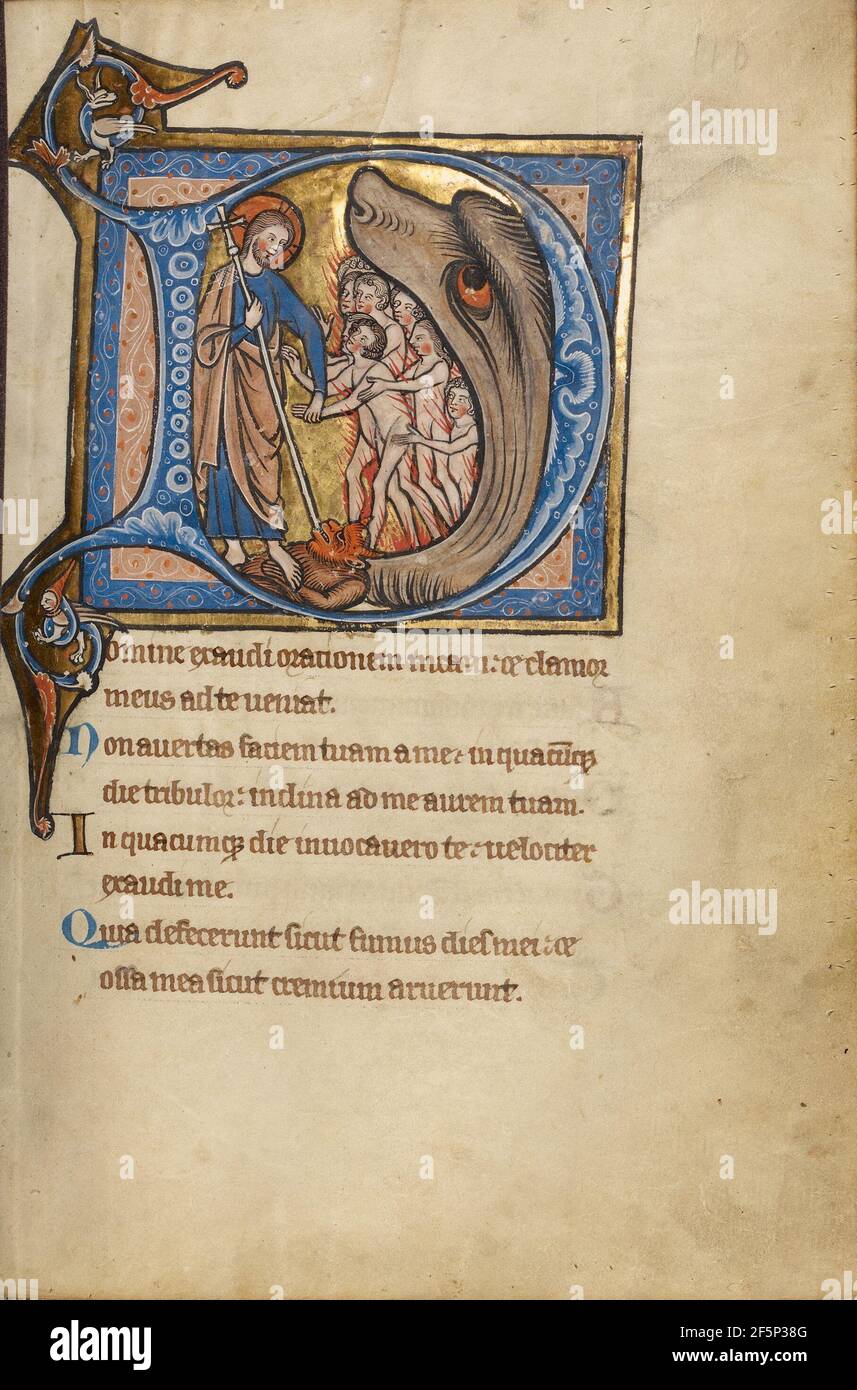 110
Domine exaudi orationem meam: et clamor
meus ad te veniat.
Non avertas faciem tuam a me: in quacumq;
die tribulor: inclina ad me aurem tuam.
In quacumq; die invocavero te: velociter
exaudi me.
Quia defecerunt sicut fumus dies mei: et
ossa mea sicut cremium aruerunt.
alamy
Image ID: 2F5P38G
www.alamy.com